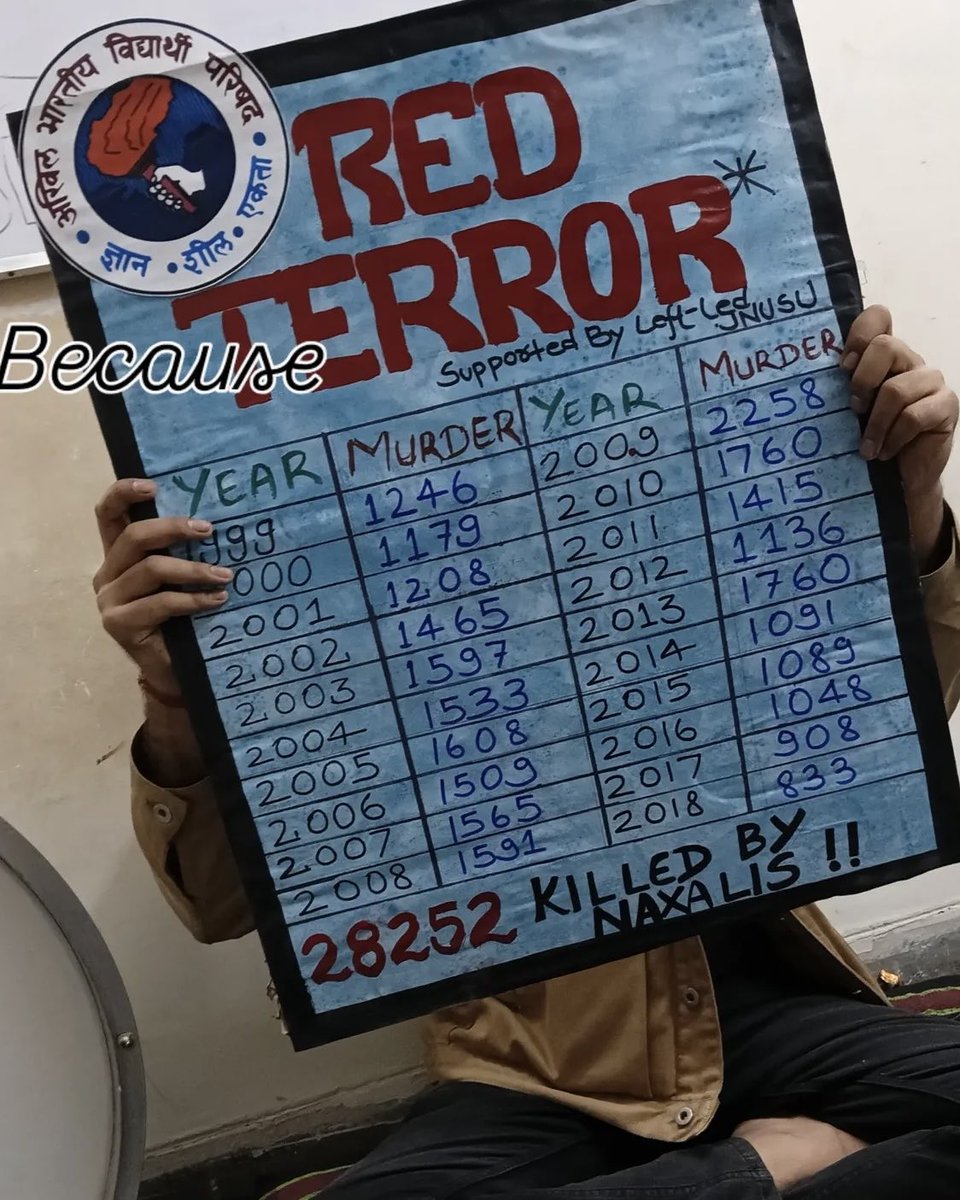 अखिल भारतीय विद्यार्थी परिषद
• ज्ञान • शील • एकता •
RED
TERROR*
Supported By Left-Led JNUSU
Because
YEAR MURDER YEAR MURDER
1999 1246 2009 2258
000 1179 2010 1760
2001 1208 2011 1415
2002 1465 2012 1136
2003 1597 2013 1760
2004 1533 2014 1091
2005 1608 2015 1089
2006 1509 2016 1048
2007 1565 2017 908
2008 1591 2018 833
28252 KILLED BY
NAXALIS !!